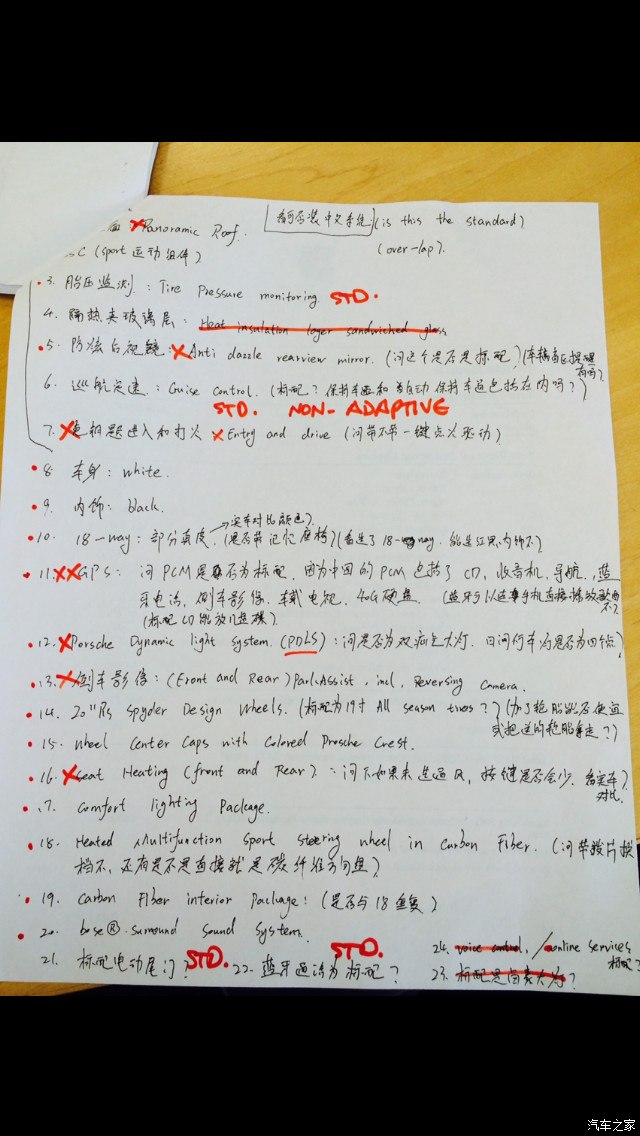 Panoramic Roof. 能否装中文系统 (is this the standard)
SC (sport 运动组件) (over-lap).
3. 胎压监测: Tire Pressure monitoring STD.
4. 隔热夹玻璃层: Heat insulation layer sandwiched glass
5. 防炫后视镜: Anti dazzle rearview mirror. (问这个是否是标配)
6. 巡航定速: Cruise Control. (标配? 保持车距和 自动保持车道包括在内吗?)
STD. NON-ADAPTIVE
7. 免钥匙进入和打火 Entry and drive (问带不带一键点火驱动)
8. 车身: white.
9. 内饰: black.
10. 18-way: 部分真皮, (是否带记忆座椅) (看选了18-way, 能选红黑内饰不)
→实车对比颜色).
11. GPS: 问PCM是否为标配, 因为中国的PCM包括了CD, 收音机, 导航, 蓝
牙电话, 倒车影像, 车载电视, 40G硬盘. (蓝牙可以连着手机直接播放歌曲不?)
(标配CD能放几盘碟)
12. Porsche Dynamic light System. (PDLS): 问是否为双 大灯. 日间行车灯是否为四个点)
13. 倒车影像: (Front and Rear) ParkAssist, incl, Reversing Camera.
14. 20" RS Spyder Design Wheels. (标配为19寸 All season tires?) (加了轮胎能否便宜
或把送的轮胎拿走?)
15. Wheel Center Caps with Colored Prosche Crest.
16. Seat Heating (front and Rear): 问下如果未选通风, 按键是否会少. 看实车
对比.
17. Comfort lighting Package.
18. Heated Multifunction Sport Steering wheel in Carbon Fiber. (问带拨片换
档不, 还有是不是直接就是碳纤维方向盘)
19. Carbon Fiber interior Package: (是否与18重复)
20. bose® surround Sound System.
21. 标配电动尾门? STD. 22. 蓝牙通话为标配? STD. 24. voice control, / online services
标配?
23. 标配是 大灯?
汽车之家